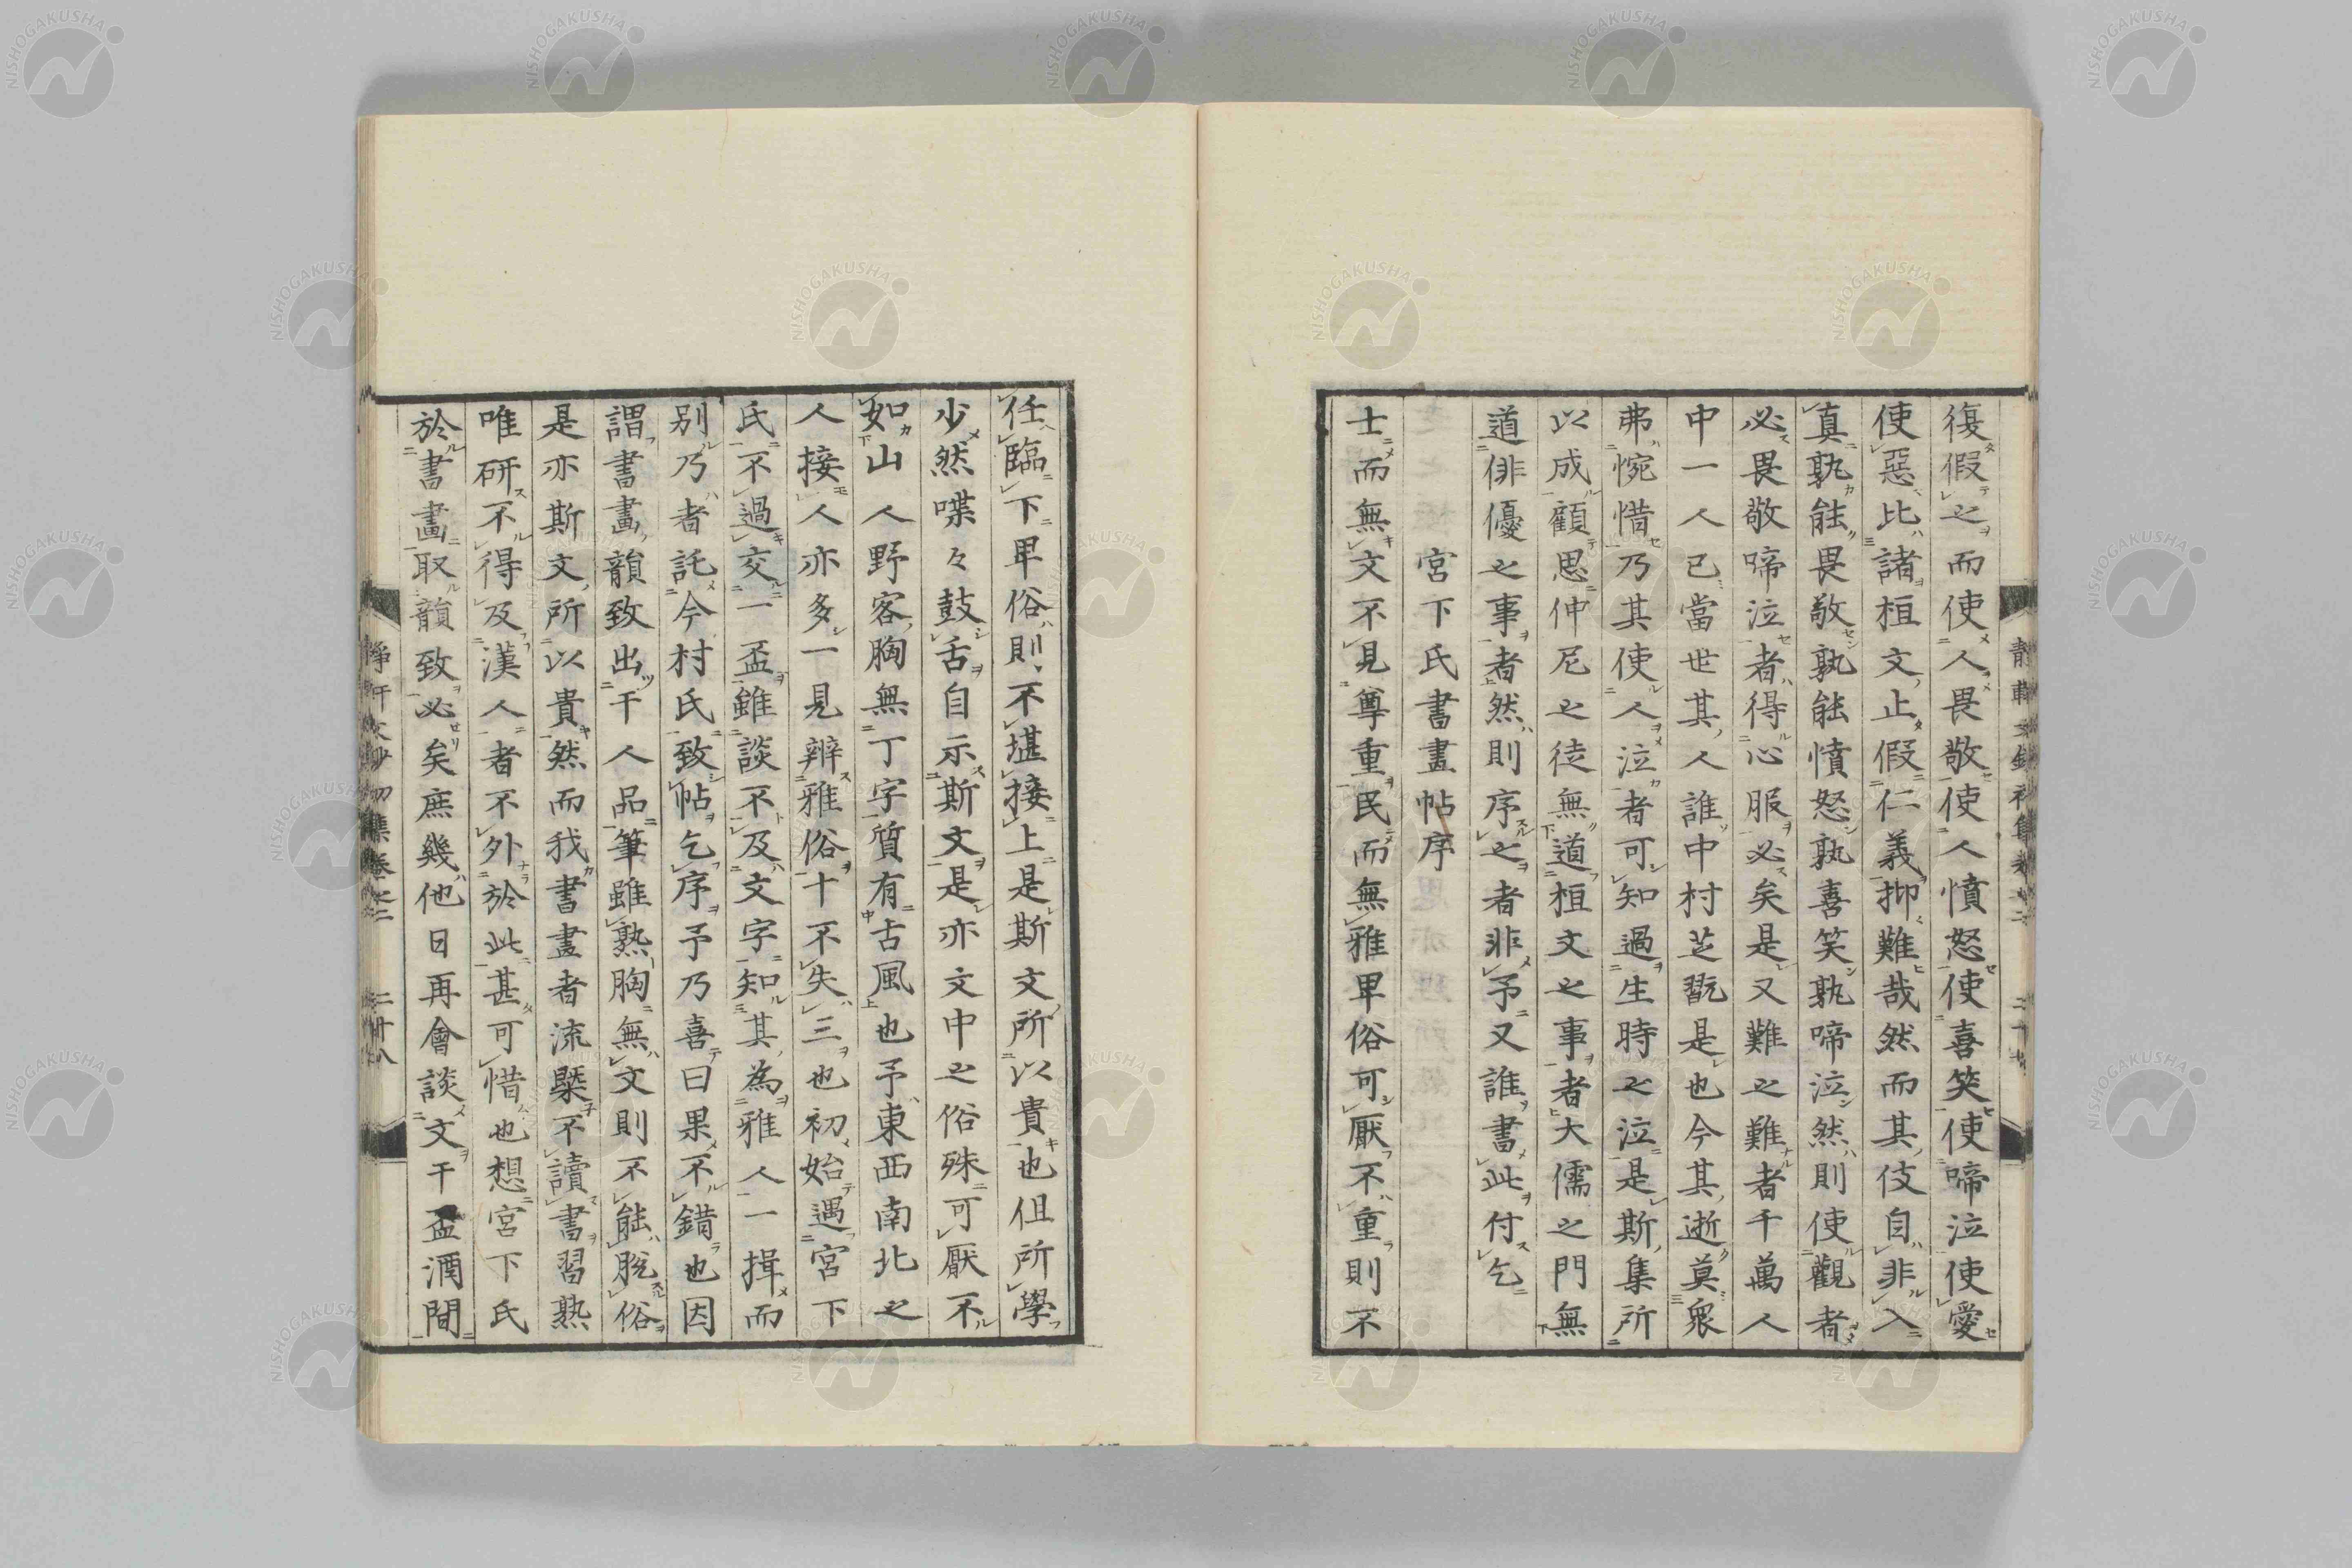 復假之而使人畏敬使人憤怒使喜笑使啼泣使愛
使惡比諸桓文止假仁義抑難哉然而其伎自非入
真孰能畏敬孰能憤怒孰喜笑孰啼泣然則使觀者
必畏敬啼泣者得心服必矣是又難之難者千萬人
中一人已當世其人誰中村芝翫是也今其逝莫衆
弗惋惜乃其使人泣者可知過生時之泣是斯集所
以成顧思仲尼之徒無道桓文之事者大儒之門無
道俳優之事者然則序之者非予又誰書此付乞
宮下氏書畫帖序
士而無文不見尊重民而無雅卑俗可厭不重則不
任臨下卑俗則不堪接上是斯文所以貴也但所學
少然喋々鼓舌自示斯文是亦文中之俗殊可厭不
如山人野客胸無丁字質有古風也予東西南北之
人接人亦多一見辨雅俗十不失三也初始遇宮下
氏不過交一盃雖談不及文字知其為雅人一揖而
別乃者託今村氏致帖乞序予乃喜曰果不錯也因
謂書畫韻致出于人品筆雖熟胸無文則不能脫俗
是亦斯文所以貴然而我書畫者流槩不讀書習熟
唯研不得及漢人者不外於此甚可惜也想宮下氏
於書畫取韻致必矣庶幾他日再會談文于盃酒間
靜軒文鈔初集卷之二 二十八
NISHOGAKUSHA